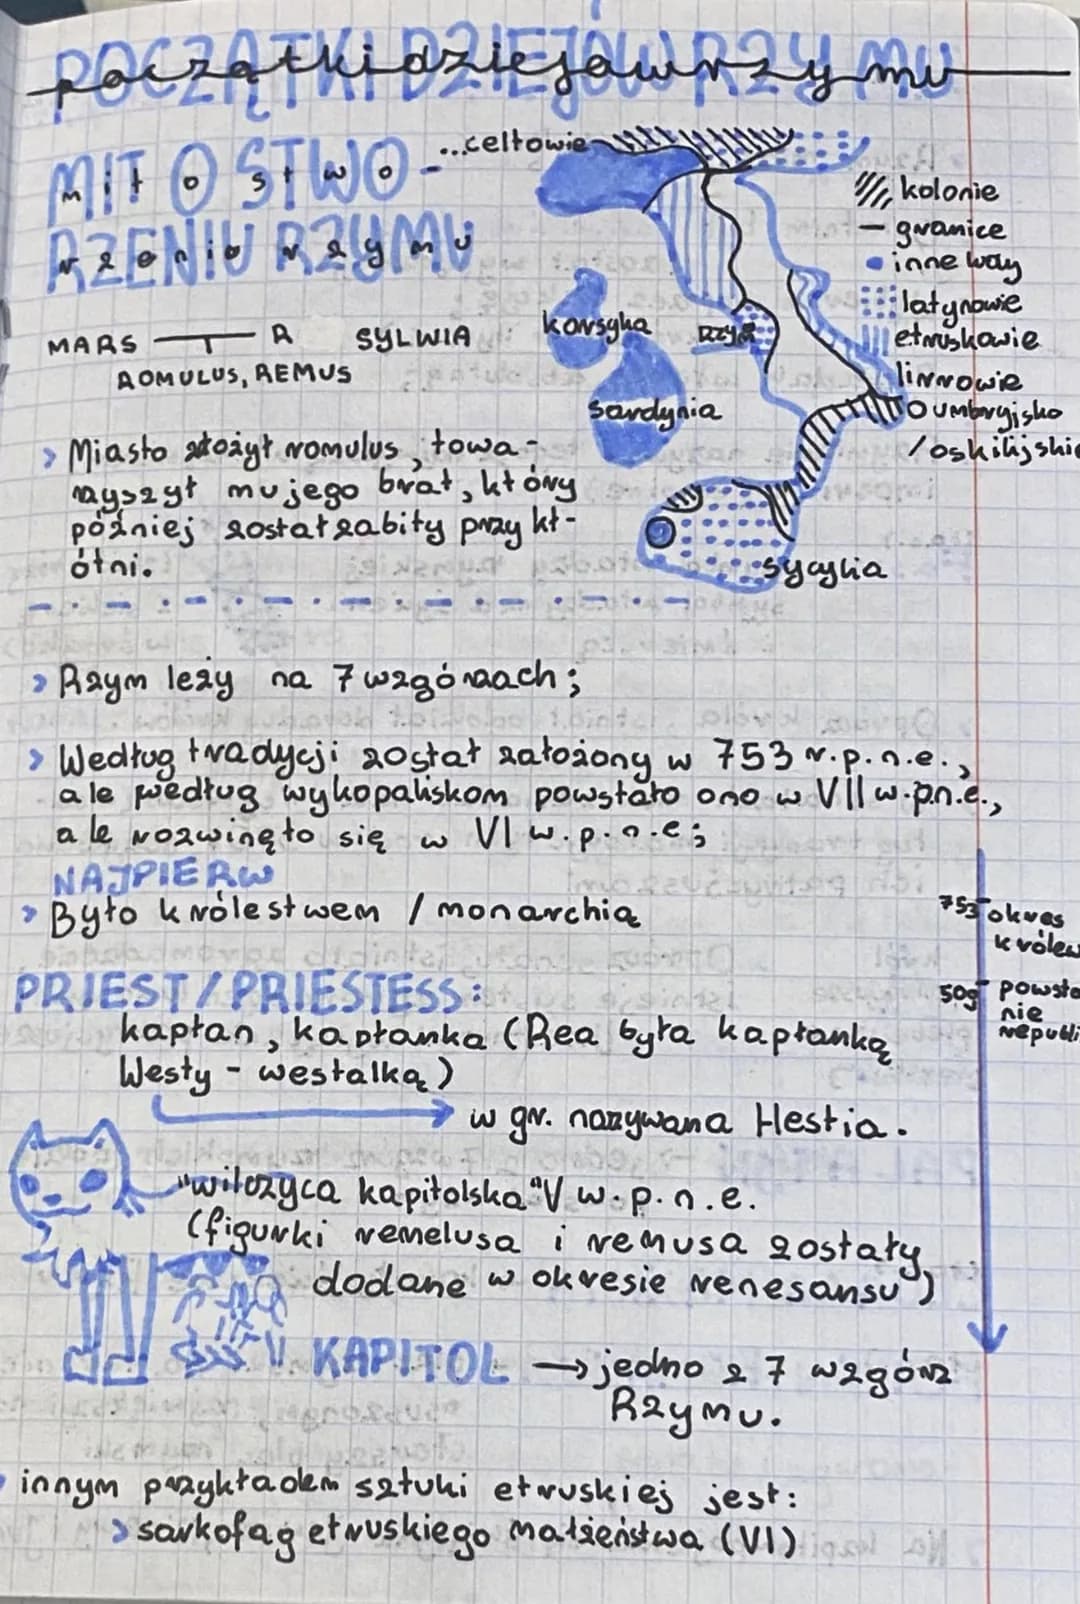 POCZĄTKI DZIEJÓW RZYMU
początki dziejów rzymu
MIT O STWO-
RZENIU RZYMU
...celtowie
kolonie
granice
inne
latynowie
etruskowie
korsyka
Rzym
Sardynia
Sycylia
MARS R SYLWIA
ROMULUS, REMUS
› Miasto złożył romulus, towa-
rzyszył mu jego brat, który
później został zabity przy kł-
ótni.
› Rzym leży na 7 wzgórzach;
› Według tradycji został założony w 753 r.p.n.e.,
ale według wykopaliskom powstało ono w VII w.p.n.e.,
ale rozwinęło się w VI w.p.n.e;
NAJPIERW
› Było królestwem / monarchią
753 okres
królew
509 powsta
nie
republi
PRIEST/PRIESTESS:
kapłan, kapłanka (Rea była kapłanką
Westy - westalką)
w gr. nazywana Hestia.
"wilczyca kapitolska" V w.p.n.e.
(figurki remelusa i remusa zostały
dodane w okresie renesansu)
KAPITOL → jedno z 7 wzgórz
Rzymu.
innym przykładem sztuki etruskiej jest:
› sarkofag etruskiego małżeństwa (VI)